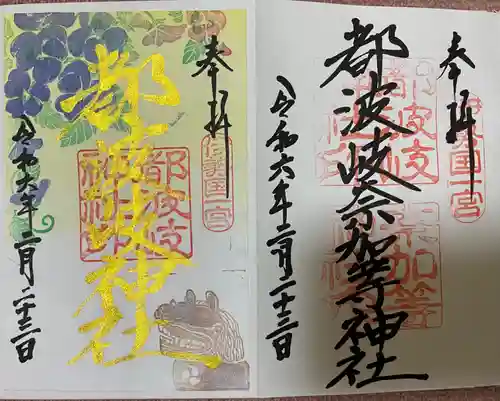 奉拝
都波岐奈加等神社
伊勢国一宮
令和六年二月二十三日
奉拝
都波岐神社
伊勢国一宮
都波岐
神社
令和六年二月二十三日